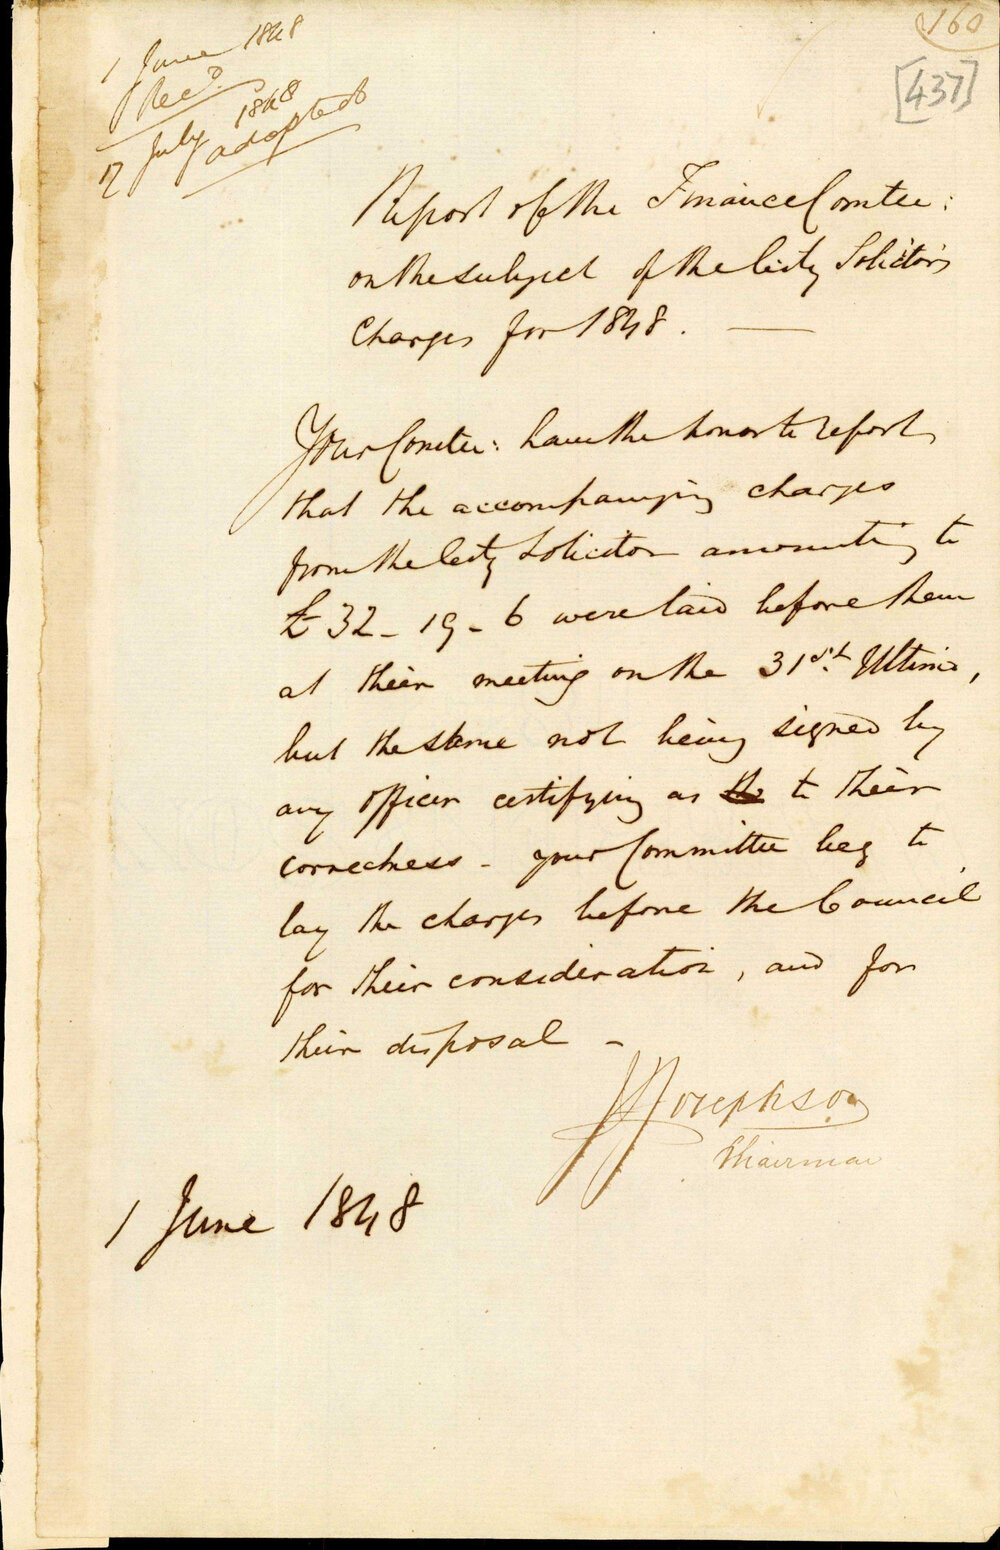 1 June 1848
Recd.
7 July 1848
adopted
160
[437]
Report of the Finance Comtee:
on the subject of the City Solicitor's
Charges for 1848. —
Your Comtee: have the honor to report
that the accompanying charges
from the City Solicitor amounting to
£32-19-6 were laid before them
at their meeting on the 31st. Ultimo,
but the same not being signed by
any officer certifying as to their
correctness - your Committee beg to
lay the charges before the Council
for their consideration, and for
their disposal -
J Josephson
Chairman
1 June 1848